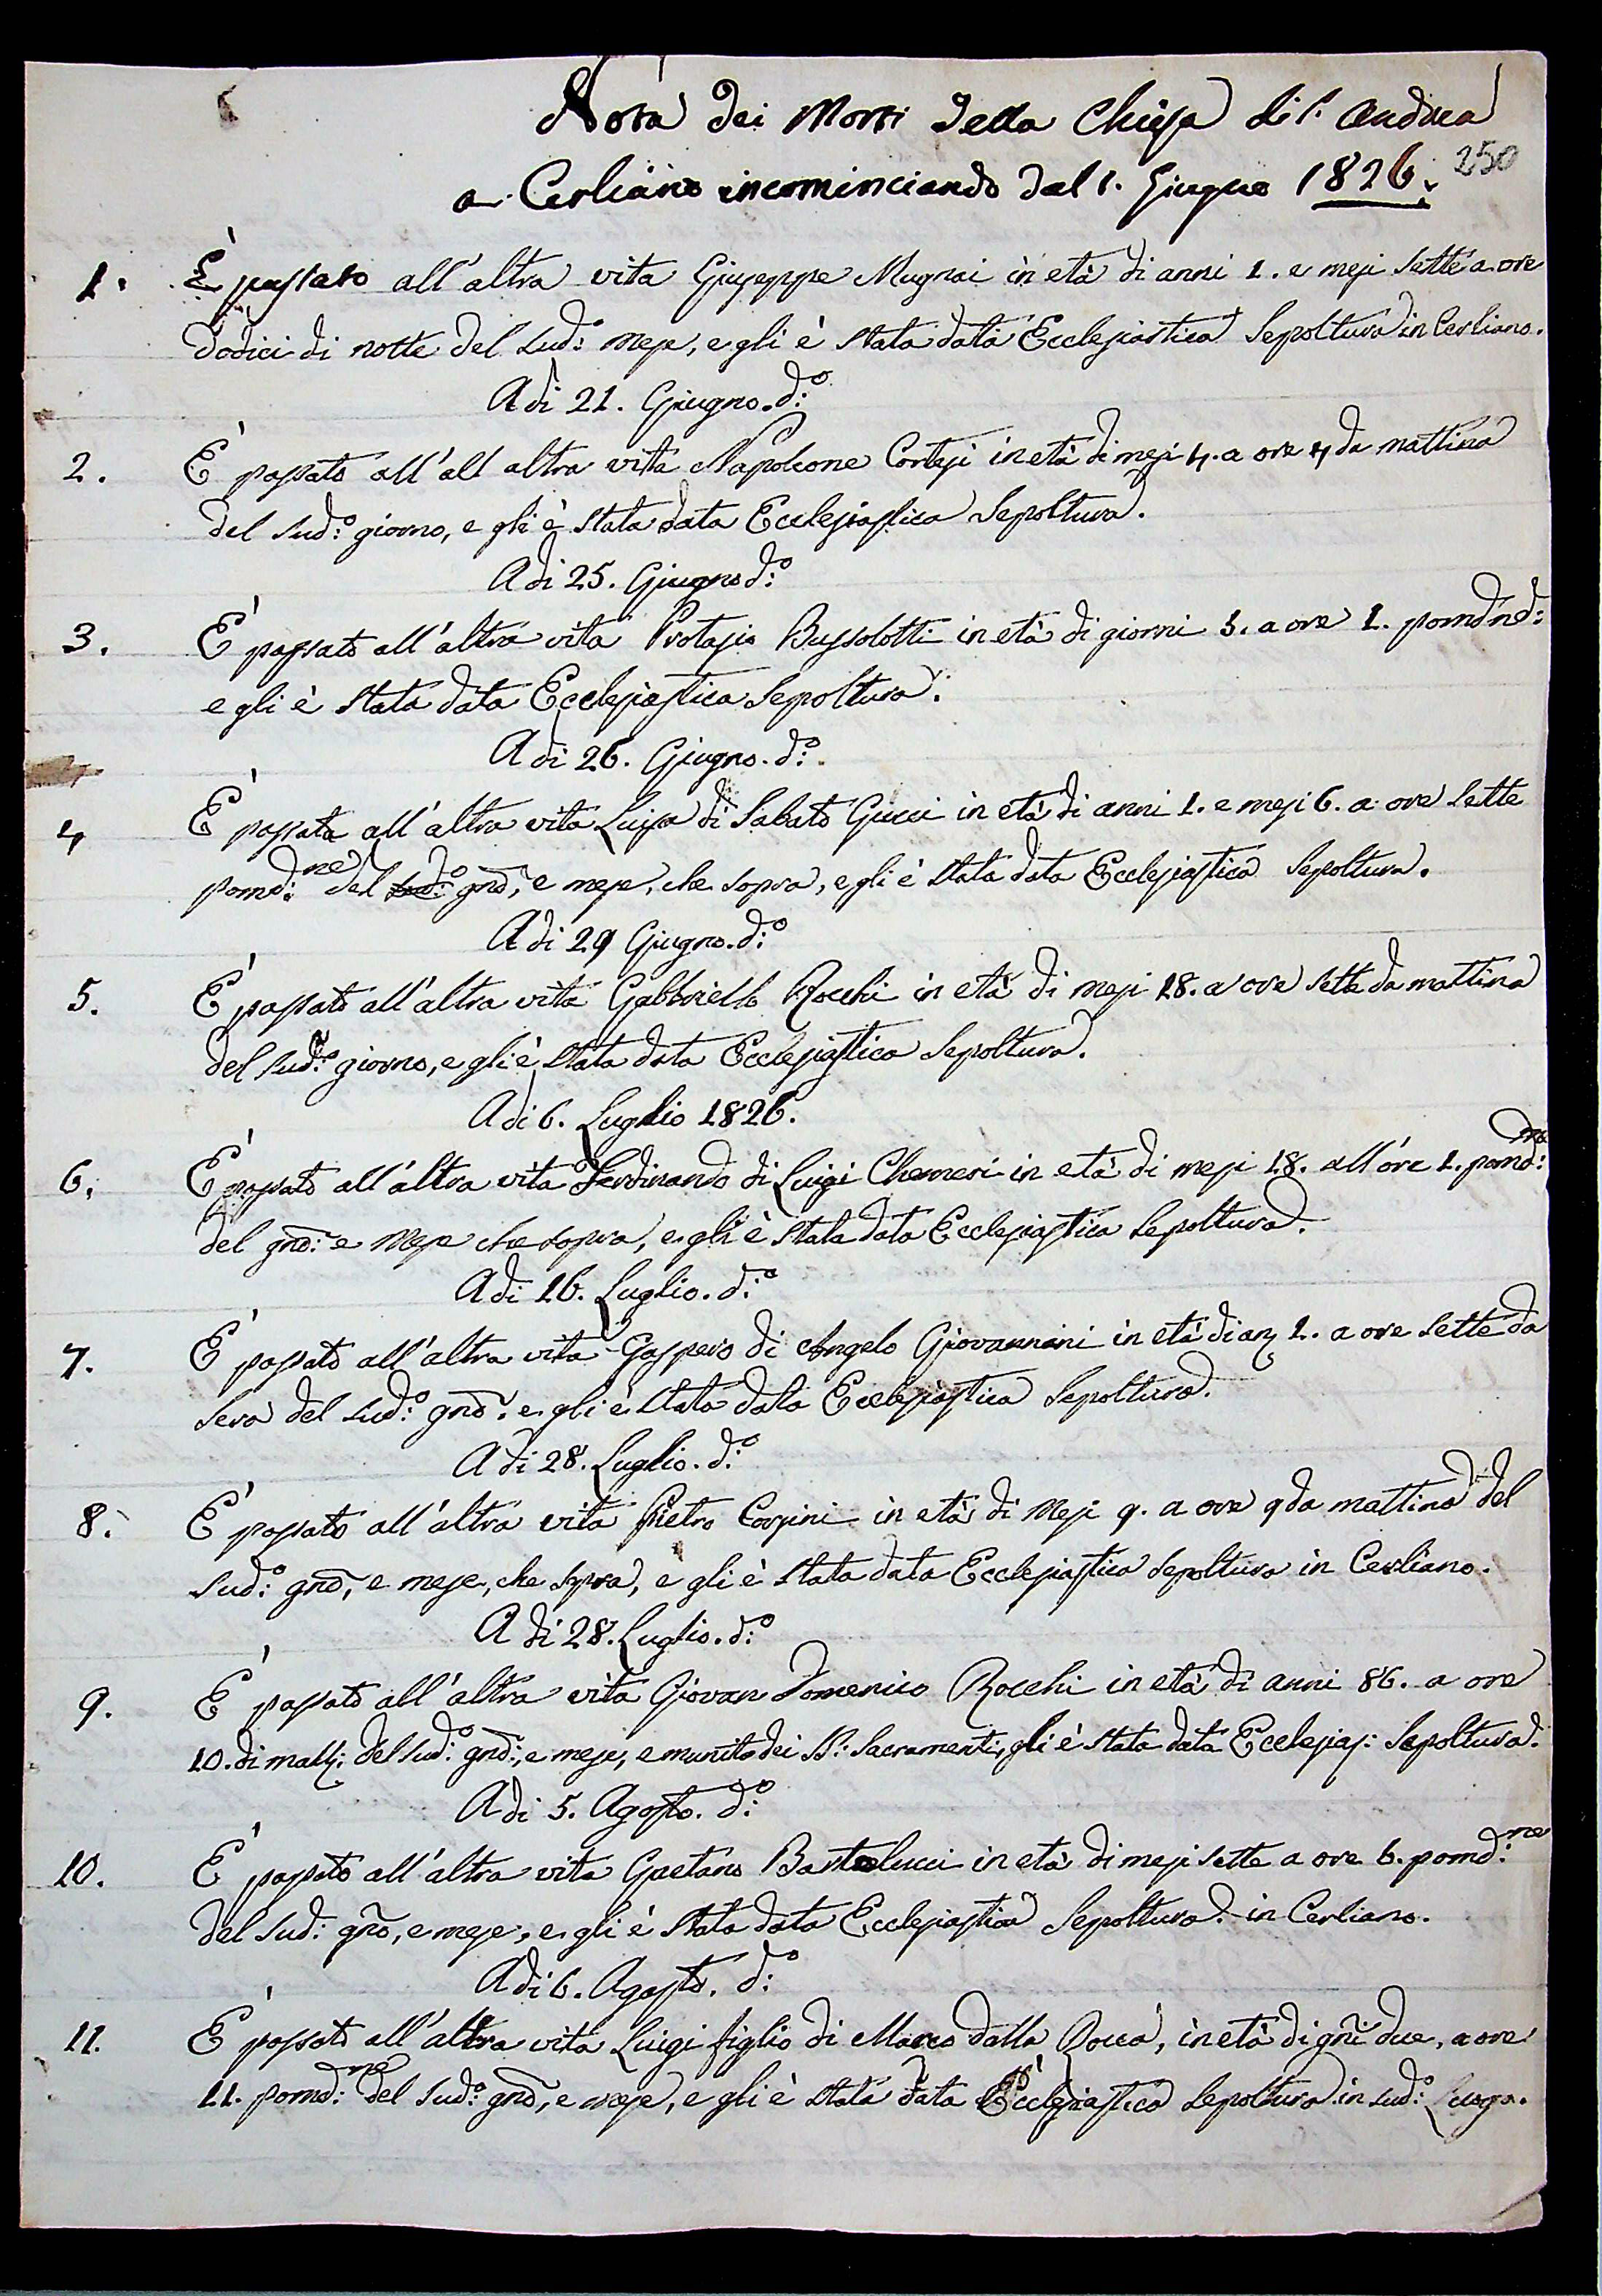 Nota dei Morti della Chiesa di S. Andrea
a Cerliano incominciando dal 1. Giugno 1826.
250
1. È passato all'altra vita Giuseppe Mugnai in età di anni 1. e mesi sette a ore
dodici di notte del sud:º mese, e gli è stata data Ecclesiastica Sepoltura in Cerliano.
A di 21. Giugno. d:º
2. È passato all'all altra vita Napoleone Cortesi in età di mesi 4. a ore 4 da mattina
del sud:º giorno, e gli è stata data Ecclesiastica Sepoltura.
A di 25. Giugno d:º
3. È passato all'altra vita Protasio Bussolotti in età di giorni 5. a ore 1. pomd:ne d:
e gli è stata data Ecclesiastica Sepoltura.
A di 26. Giugno. d:º
4 È passata all'altra vita Luisa di Sabato Gucci in età di anni 1. e mesi 6. a ore sette
pomd:ne del sud:º gno, e mese, che sopra, e gli è stata data Ecclesiastica Sepoltura.
A di 29 Giugno. d:º
5. È passato all'altra vita Gabbriello Rocchi in età di mesi 18. a ore sette da mattina
del sud:º giorno, e gli è stata data Ecclesiastica Sepoltura.
A di 6. Luglio 1826.
6. È passato all'altra vita Ferdinando di Luigi Chemeri in età di mesi 18. all'ore 1. pomd:ne
del gno: e mese che sopra, e gli è stata data Ecclesiastica Sepoltura.
A di 16. Luglio. d:º
7. È passato all'altra vita Gaspero di Angelo Giovannini in età di an; 1. a ore sette da
sera del sud:º gno. e gli è stata data Ecclesiastica Sepoltura.
A di 28. Luglio. d:º
8. È passato all'altra vita Pietro Corsini in età di Mesi 9. a ore 9 da mattina del
sud:º gno, e mese, che sopra, e gli è stata data Ecclesiastica Sepoltura in Cerliano.
A di 28. Luglio. d:º
9. È passato all'altra vita Giovan Domenico Rocchi in età di anni 86. a ore
10. di matt: del sud:º gno:, e mese, e munito dei SS: Sacramenti, gli è stata data Ecclesias: Sepoltura.
A di 5. Agosto. d:º
10. È passato all'altra vita Gaetano Bartolucci in età di mesi sette a ore 6. pomd:ne
del sud: gno, e mese, e gli è stata data Ecclesiastica Sepoltura. in Cerliano.
A di 6. Agosto. d:º
11. È passato all'altra vita Luigi figlio di Marco dalla Rocca, in età di gni due, a ore
11. pomd:ne del sud:º gno, e mese, e gli è stata data Ecclesiastica Sepoltura in sud:º Luogo.